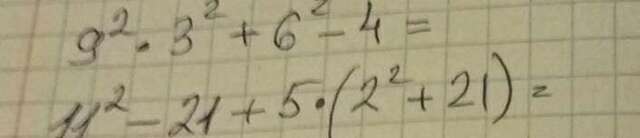 9² · 3² + 6² - 4 =
11² - 21 + 5 · (2² + 21) =